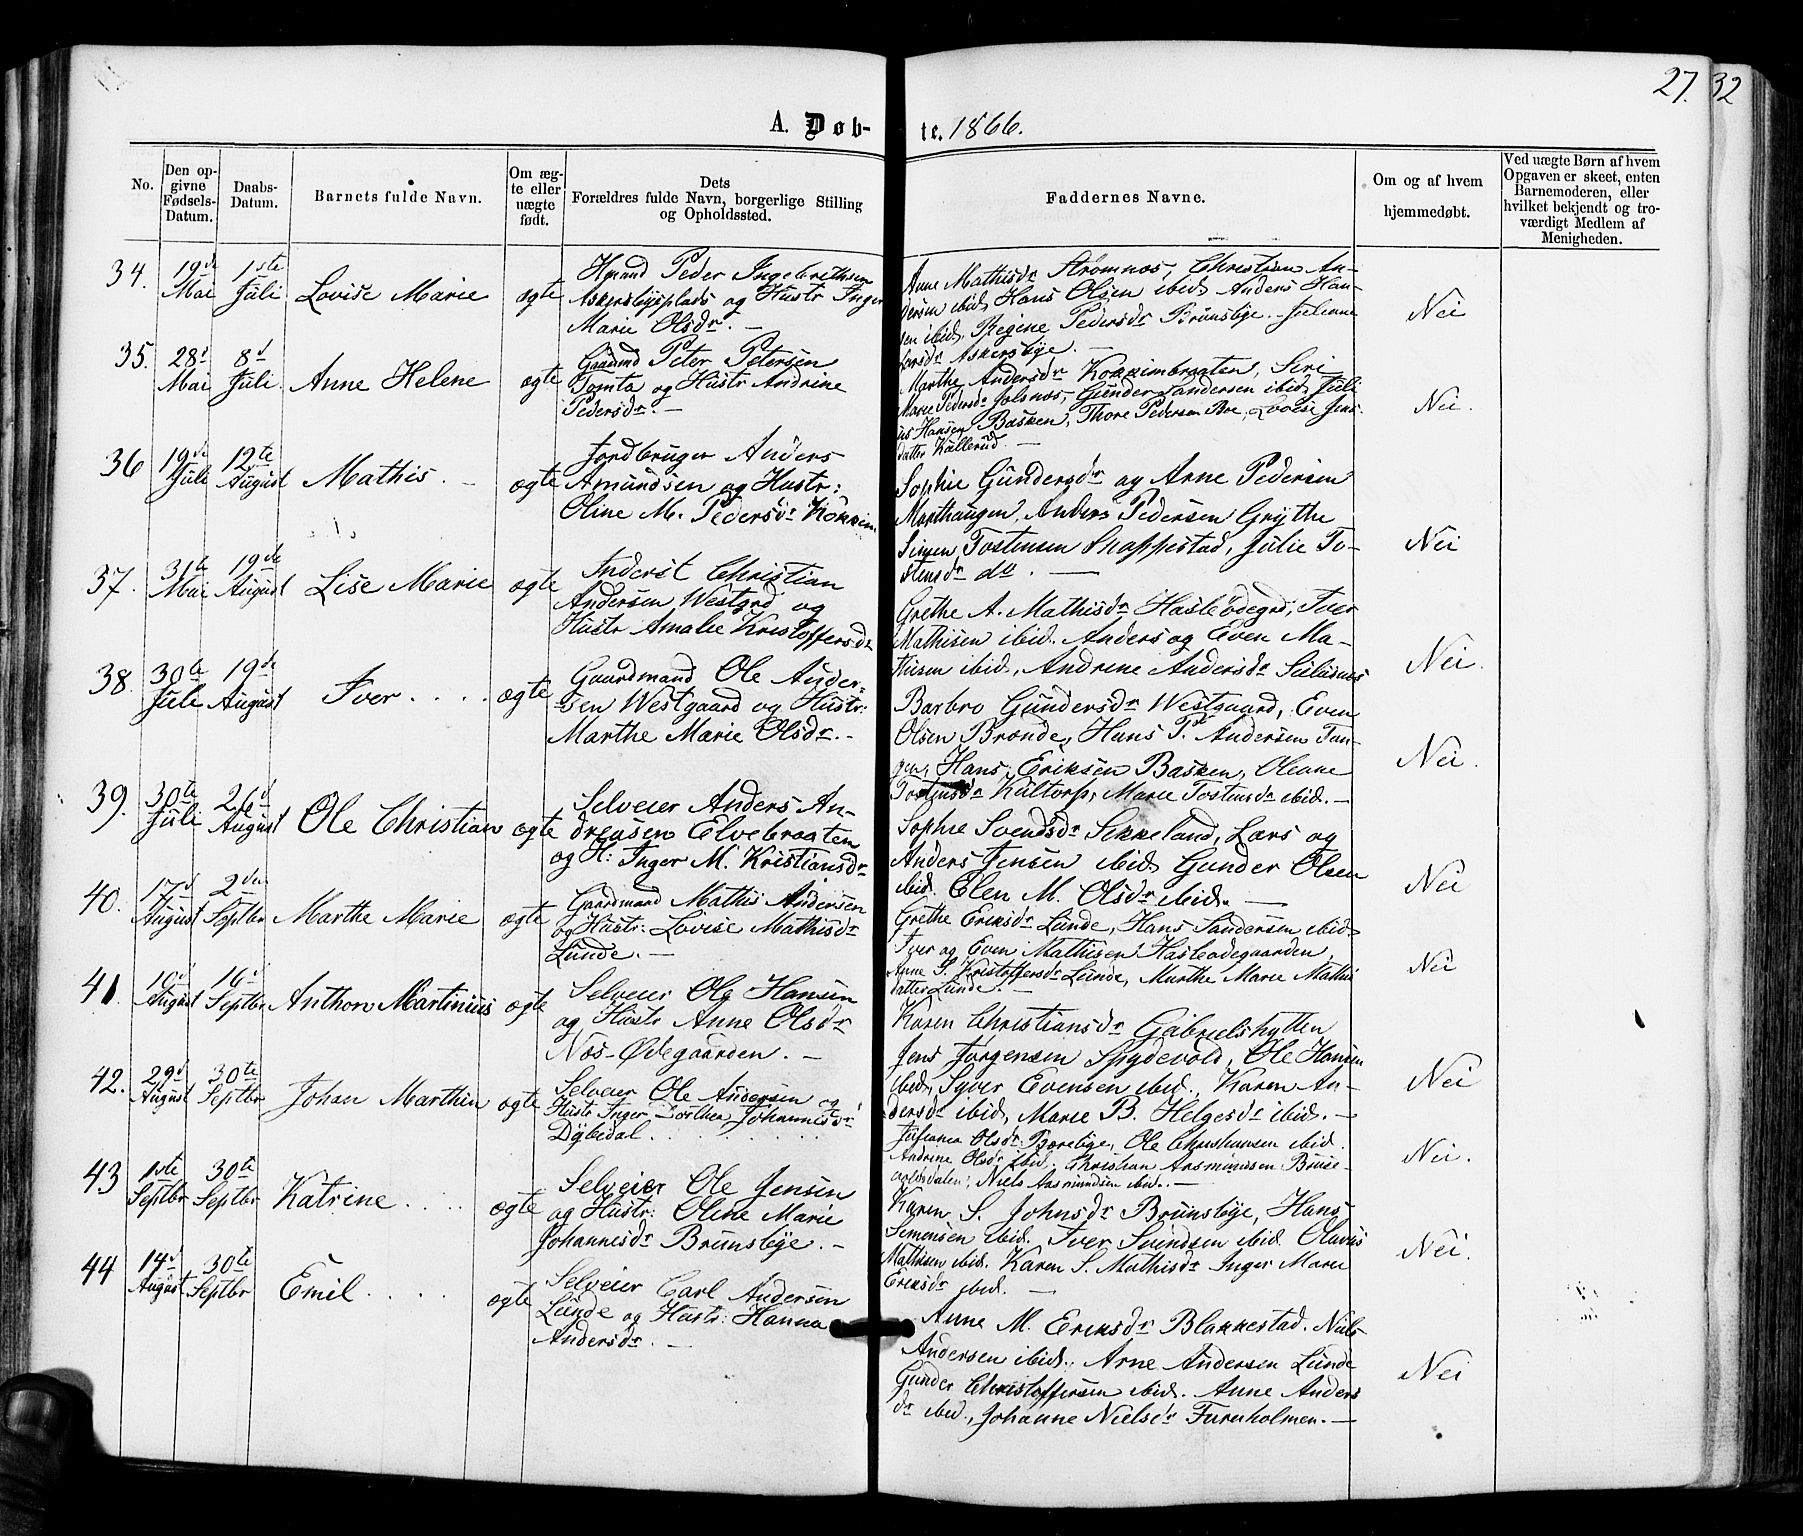 27. 32
A. Døb- te. 1866.
No.
Den op-
givne
Fødsels-
Datum.
Daabs-
Datum.
Barnets fulde Navn.
Om æg-
te eller
uægte
født.
Dets
Forældres fulde Navn, borgerlige Stilling
og Opholdssted.
Faddernes Navne.
Om og af hvem
hjemmedøbt.
Ved uægte Børn af hvem
Opgaven er skeet, enten
Barnemoderen, eller
hvilket bekjendt og tro-
værdigt Medlem af
Menigheden.
34. 19de Mai 1ste Juli Lovise Marie ægte
Peder Ingebrethsen
Askersbyeplads og Hustr Inger
Marie Olsdr. –
Anne Mathisdr Strømnos, Christian An-
dersen ibid, Hans Olsen ibid, Anders Han-
sen ibid, Regine Pedersdr Brunsbye. Juliane
Larsdr Askersbye. –
Nei
35. 28d Mai 8d Juli Anne Helene ægte
Gaamd Peter Petersen
Tomta og Hustr Andrine
Pedersdr. –
Marthe Andersdr Kokkimbraaten, Siri
Marie Pedersdr Jolsnos, Gunder Sandersen ibid, Juli
us Hansen Basken, Thore Pedersen Bre, Lovise Jens
datter Kullerud. –
Nei.
36 19de Juli 12te August Mathis. – ægte
Jordbruger Anders
Amundsen og Hustr:
Oline M. Pedersdr Kokkim
Sophie Gundersdr og Arne Pedersen
Marthaugen, Anders Pedersen Grythe
Tostensen Snappestad, Julie To-
stensdr do. –
Nei
37. 31te Mai 19de August Lise Marie ægte
Anderst Christian
Andersen Westgrd og
Hustr Amalie Kristoffersdr
Grethe A. Mathisdr Hasleødegrd, Iver
Mathisen ibid. Anders og Even Ma-
thisen ibid, Andrine Andersdr
Nei.
38. 30te Juli 19de August Iver . . . . ægte
Gaardmand Ole Ander-
sen Westgaard og Hustr:
Marthe Marie Olsdr. –
Barbro Gundersdr Westgaard, Even
Olsen Brønde, Hans P. Andersen Tan-
gen, Hans Eriksen Basken, Oleane
Tostensdr Kultorp, Marie Tostensdr ibid. –
Nei.
39. 30te Juli 26d August Ole Christian ægte
Selveier Anders An-
dreasen Elvebraaten
og H: Inger M. Kristiansdr
Sophie Svendsdr Sikkeland, Lars og
Anders Jensen ibid, Gunder Olsen
ibid. Elen M. Olsdr ibid. –
Nei
40. 17d August 2den Septbr Marthe Marie ægte
Gaardmand Mathis Andersen
og Hustr: Lovise Mathisdr
Lunde. –
Grethe Eriksdr Lunde, Hans Sandersen ibid.
Iver og Even Mathisen Hasleødegaarden,
Anne S. Kristoffersdr Lunde, Marthe Marie Mathis
datter Lunde. –
Nei
41. 10d August 16d Septbr Anthon Martinius ægte
Selveier Ole Hansen
og Hustr Anne Olsdr
Nos-Ødegaarden. –
Karen Christiansdr Gabrielshytten
Jens Jørgensen Spydevold, Ole Hansen
ibid, Syver Evensen ibid. Karen An-
dersdr ibid, Marie B. Helgesdr ibid. –
Nei
42. 29d August 30te Septbr Johan Marthin ægte
Selveier Ole Andersen og
Hustr Inger Dorthea Johannesdr
Dybedal . . . . .
Olsdr Bærebye, Ole Christiansen ibid.
Andrine Olsdr ibid. Christian Aasmundsen
Niels Aasmundsen ibid. –
Nei.
43 1ste Septbr 30te Septbr Katrine . . . . ægte
Selveier Ole Jensen
og Hustr: Oline Marie
Johannesdr Brunsbye. –
Karen S. Johnsdr Brunsbye, Hans
Simonsen ibid. Iver Svendsen ibid. Olavus
Mathisen ibid. Karen S. Mathisdr Inger Marie
Eriksdr ibid. –
Nei.
44 14d August 30te Septbr Emil . . . . ægte
Selveier Carl Andersen
Lunde og Hustr: Hanna
Andersdr. –
Anne M. Eriksdr Blakkestad. Niels
Andersen ibid., Arne Andersen Lunde
Gunder Christoffersen ibid. Anne Anders
dr ibid., Johanne Nielsdr Furuholmen. –
Nei